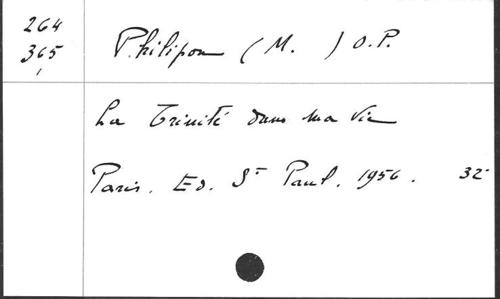 264
365
Philipon (M. ) O.P.
La Trinité dans ma Vie
Paris. Ed. St Paul. 1956. 32